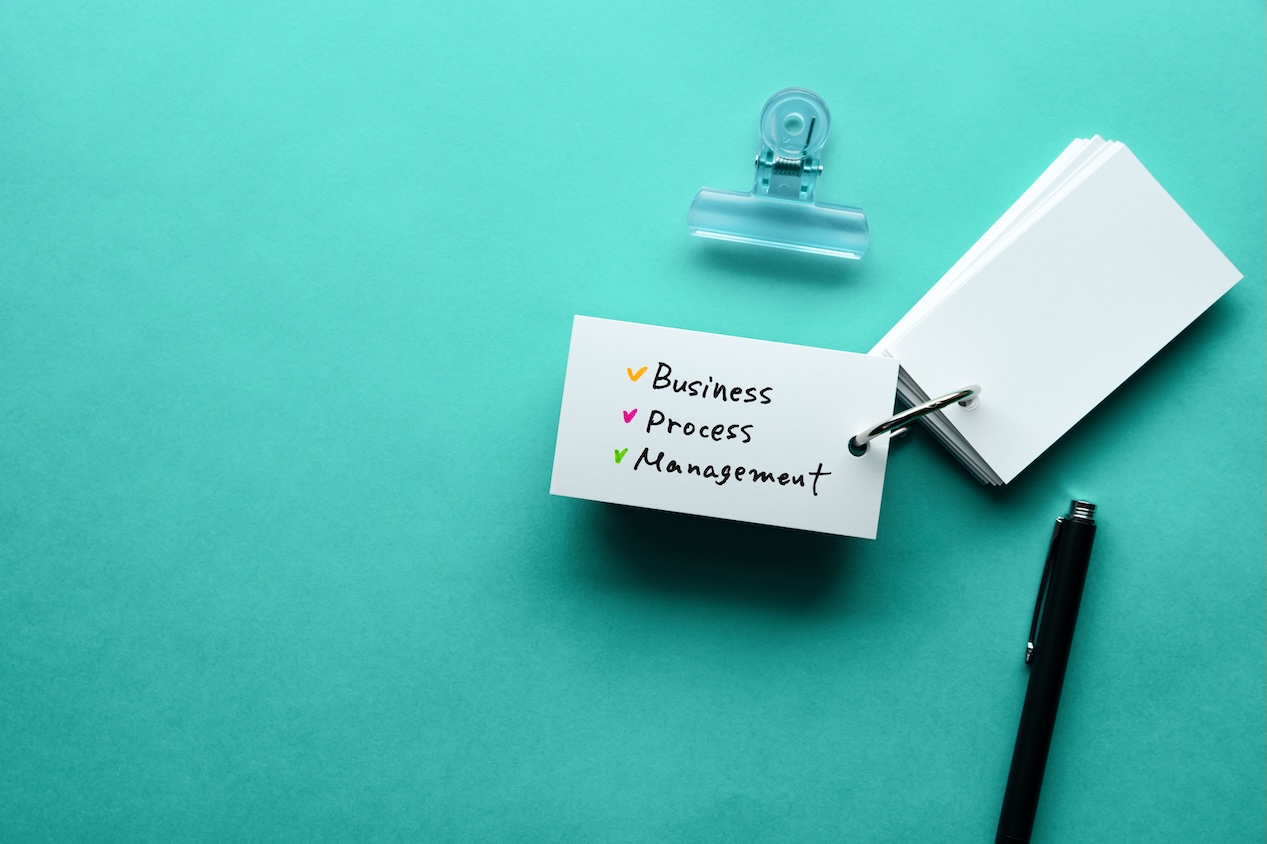 Business
Process
Management